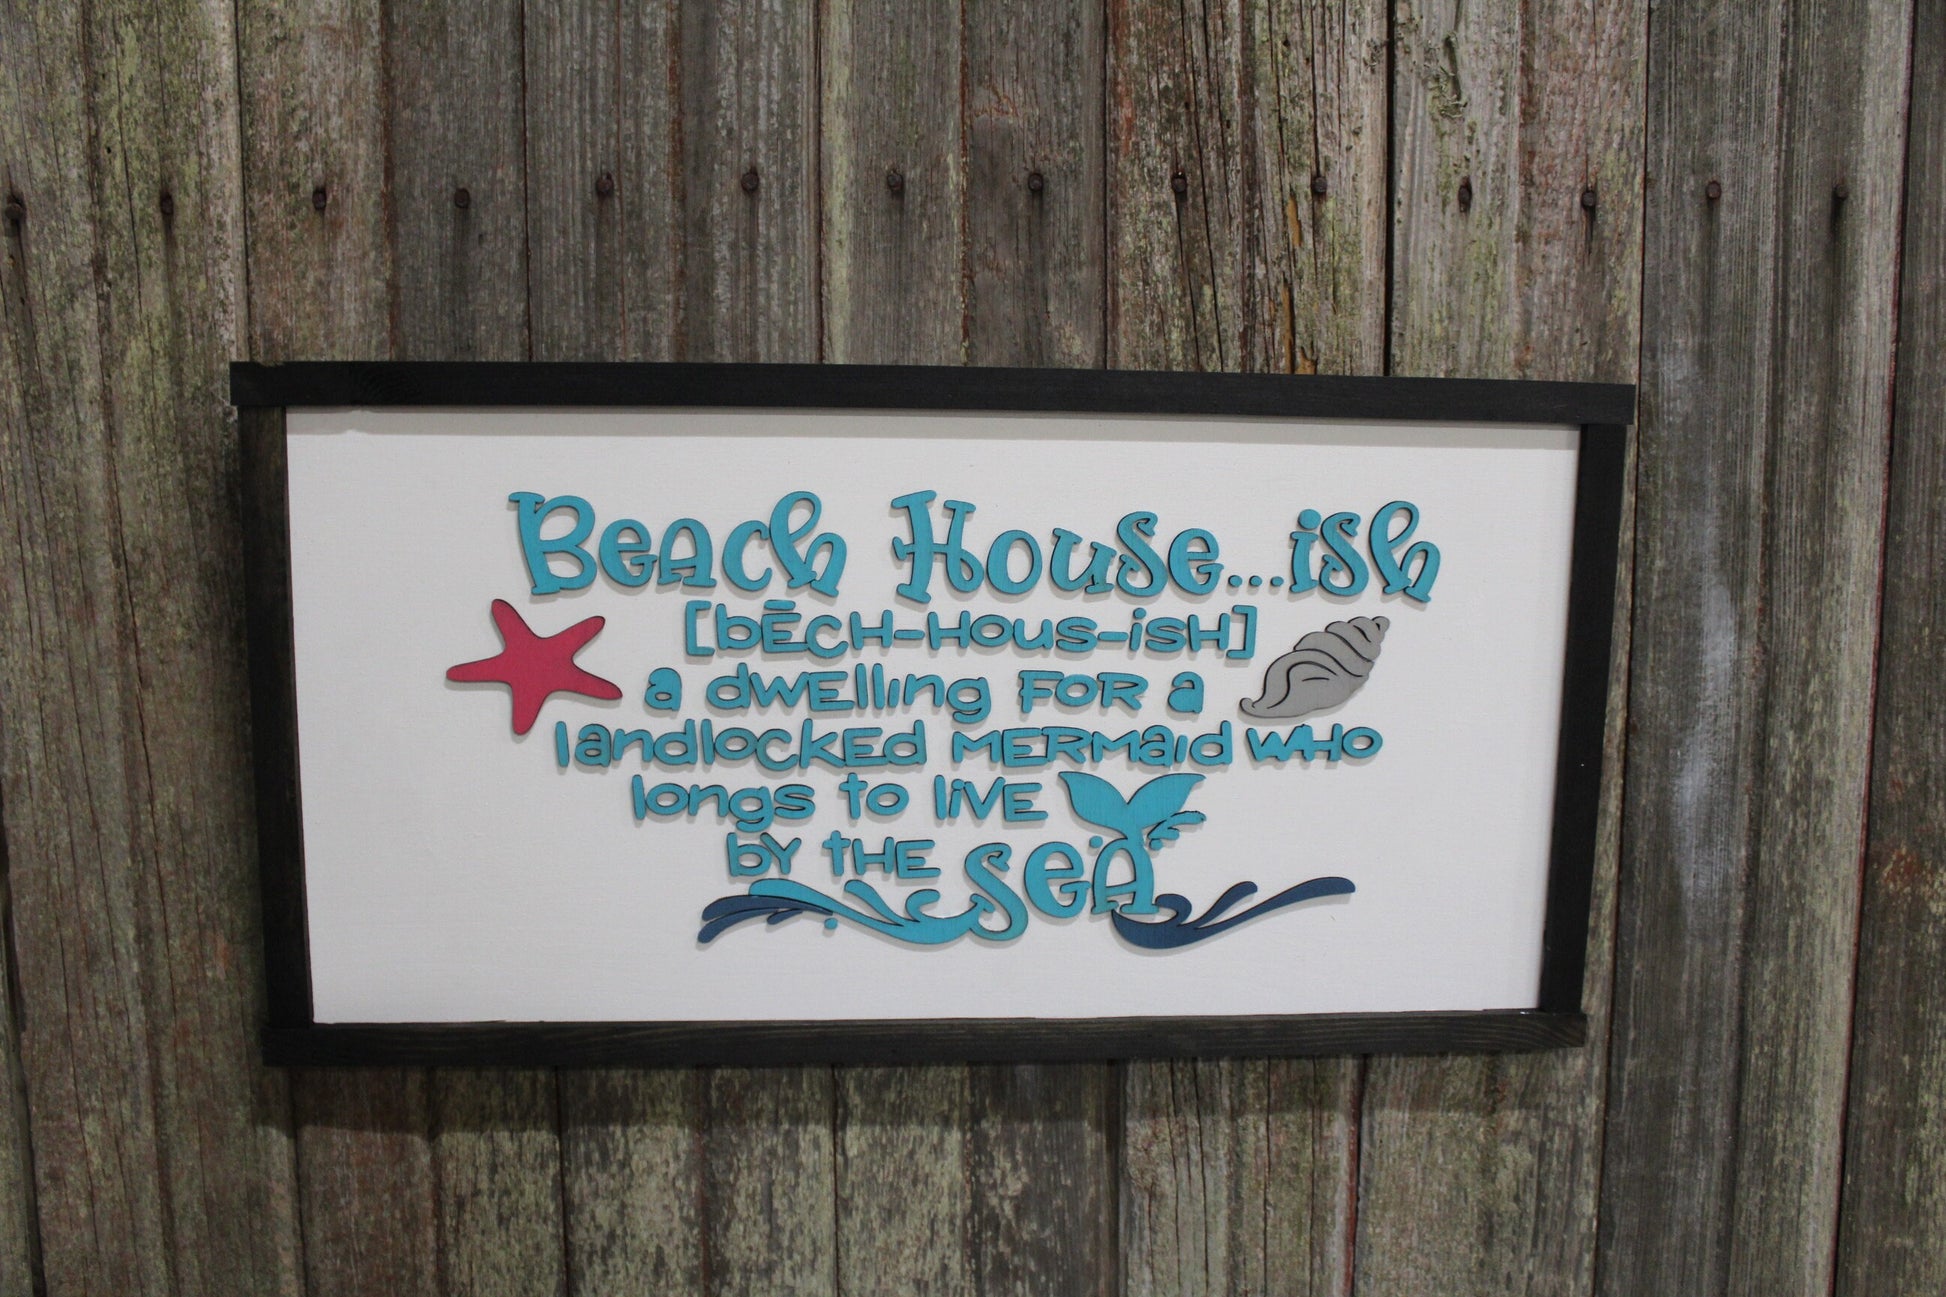 Beach House...ish
[bēch-hous-ish]
a dwelling for a
landlocked mermaid who
longs to live
by the sea